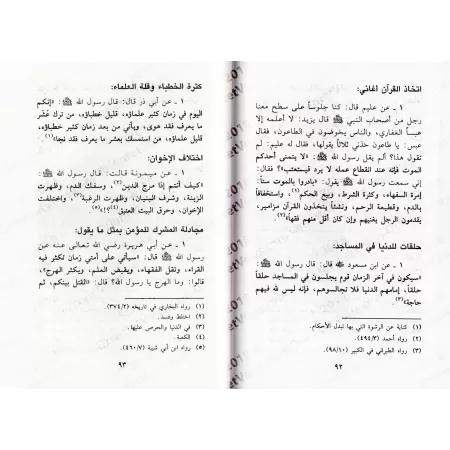 اتخاذ القرآن أغاني:
١ ـ عن عليم قال: كنا جلوساً على سطح معنا
رجل من أصحاب النبي ﷺ قال يزيد: لا أعلمه إلا
عبساً الغفاري، والناس يخوضون في الطاعون، فقال
عبس: يا طاعون خذني ثلاثاً يقولها، فقال له عليم: لم
تقول هذا؟ ألم يقل رسول الله ﷺ: «لا يتمنى أحدكم
الموت فإنه عند انقطاع عمله لا يرد فيستعتب»؟ فقال:
إني سمعت رسول الله ﷺ يقول: «بادروا بالموت ستاً:
إمرة السفهاء، وكثرة الشرط، وبيع الحكم(١)، واستخفافاً
بالدم، وقطيعة الرحم، ونشئاً يتخذون القرآن مزامير،
يقدمون الرجل يغنيهم وإن كان أقل منهم فقهاً»(٢).
حلقات للدنيا في المساجد:
١ ـ عن ابن مسعود قال: قال رسول الله ﷺ:
«سيكون في آخر الزمان قوم يجلسون في المساجد حلقاً
حلقاً، إمامهم الدنيا فلا تجالسوهم، فإنه ليس لله فيهم
حاجة»(٣).
(١) كناية عن الرشوة التي بها تبدل الأحكام.
(٢) رواه أحمد (٤٩٤/٣).
(٣) رواه الطبراني في الكبير (٩٨/١٠).
٩٢
كثرة الخطباء وقلة العلماء:
١ ـ عن أبي ذر قال: قال رسول الله ﷺ: «إنكم
اليوم في زمان كثير علماؤه، قليل خطباؤه، من ترك عُشر
ما يعرف فقد هوى، ويأتي من بعد زمان كثير خطباؤه،
قليل علماؤه، من استمسك بعشر ما يعرف فقد نجا»(١).
اختلاف الإخوان:
١ ـ عن ميمونة قالت: قال رسول الله ﷺ:
«كيف أنتم إذا مرج الدين(٢)، وسفك الدم، وظهرت
الزينة، وشرف البنيان، وظهرت الرغبة(٣)، واختلفت
الإخوان، وحرق البيت العتيق(٤)؟»(٥).
مجادلة المشرك للمؤمن بمثل ما يقول:
١ ـ عن أبي هريرة رضي الله تعالى عنه عن
رسول الله ﷺ قال: «سيأتي على أمتي زمان تكثر فيه
القراء، وتقل الفقهاء، ويقبض العلم، ويكثر الهرج»،
قالوا: وما الهرج يا رسول الله؟ قال: «القتل بينكم، ثم
(١) رواه البخاري في تاريخه (٣٧٤/٢).
(٢) اختلط وفسد.
(٣) في الدنيا والحرص عليها.
(٤) الكعبة.
(٥) رواه ابن أبي شيبة (٤٦٠/٧).
٩٣